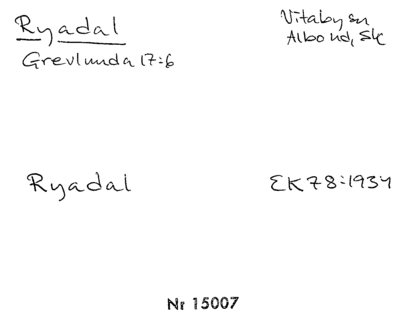 Ryadal
Grevlunda 17:6
Vitaby sn
Albo hd, Sk
Ryadal
EK 78:1934
Nr 15007